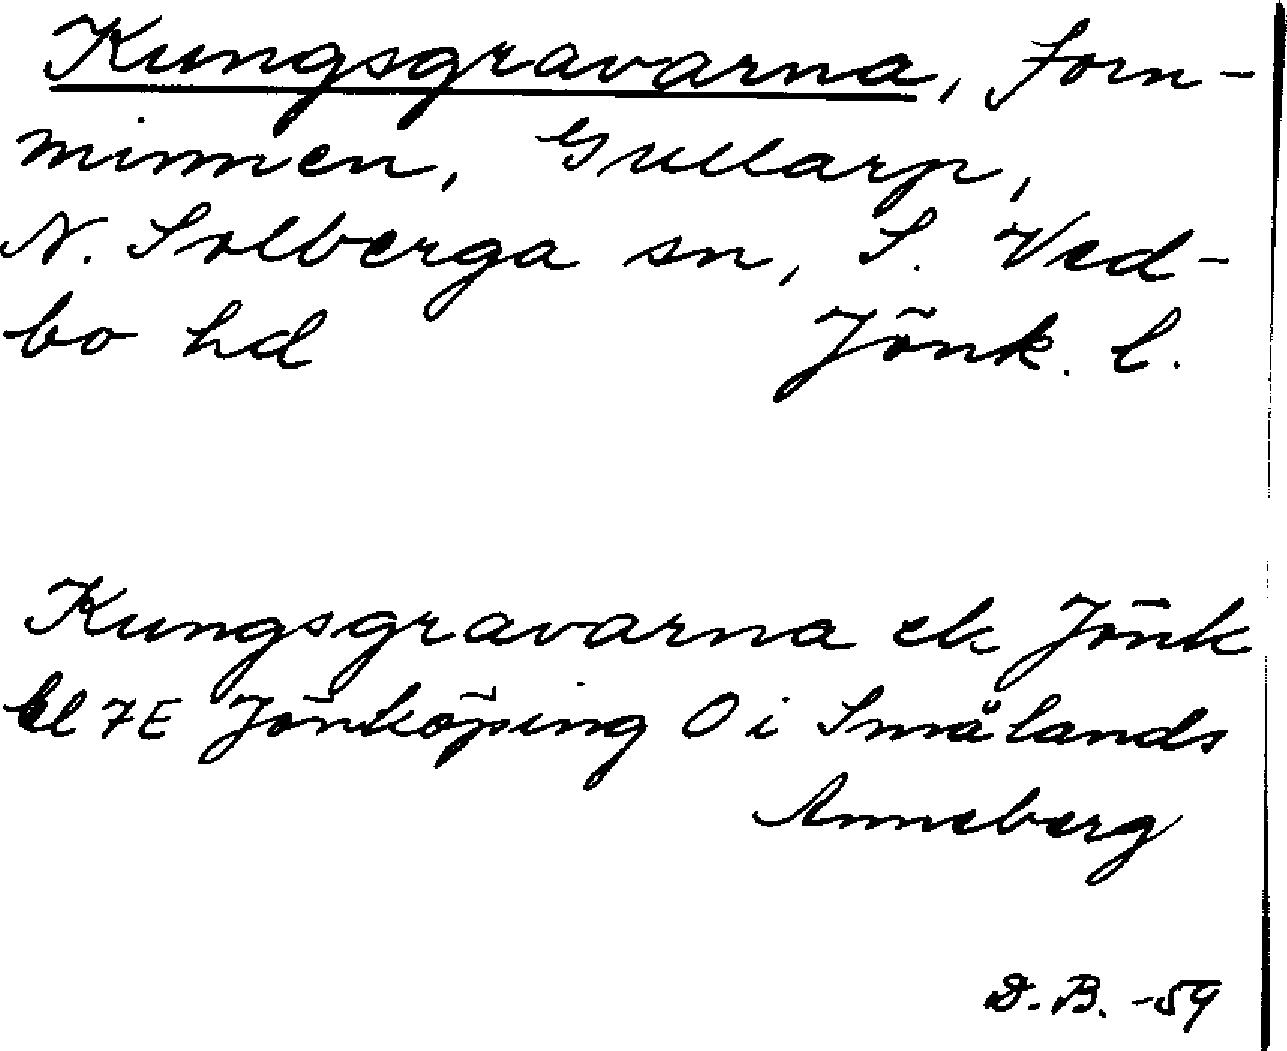 Kungsgravarna, forn-
minnen, Gullarp,
N. Solberga sn, S. Ved-
bo hd Jönk. l.
Kungsgravarna ek Jönk
bl 7E Jönköping O i Smålands
Anneberg
D. B. -59